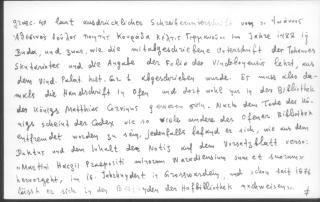 laut ausdrücklicher Schreibernotiz von
im Jahre 1482 in
Buda, und zwar, wie die mitabgeschriebene Unterschrift der Johannes
und die Angabe der Folia des Vindobonensis lehrt, aus
dem Vind. Palat. hist. Gr. 1 abgeschrieben wurde. Er muss also da-
mals die Handschrift in Ofen und dort wohl nur in der Bibliothek
des Königs Matthias Corvinus gewesen sein. Nach dem Tode des Kö-
nigs scheint der Codex wie so viele andere der Ofener Bibliothek
entfremdet worden zu sein, jedenfalls befand er sich, wie aus dem
Duktus und dem Inhalt der Notiz auf dem Vorsatzblatt verso:
"Martini Praepositi minorum Waradiensium sum et suorum"
hervorgeht, im 16. Jahrhundert in Grosswardein, und schon seit 1576
lässt er sich in den der Hofbibliothek nachweisen.